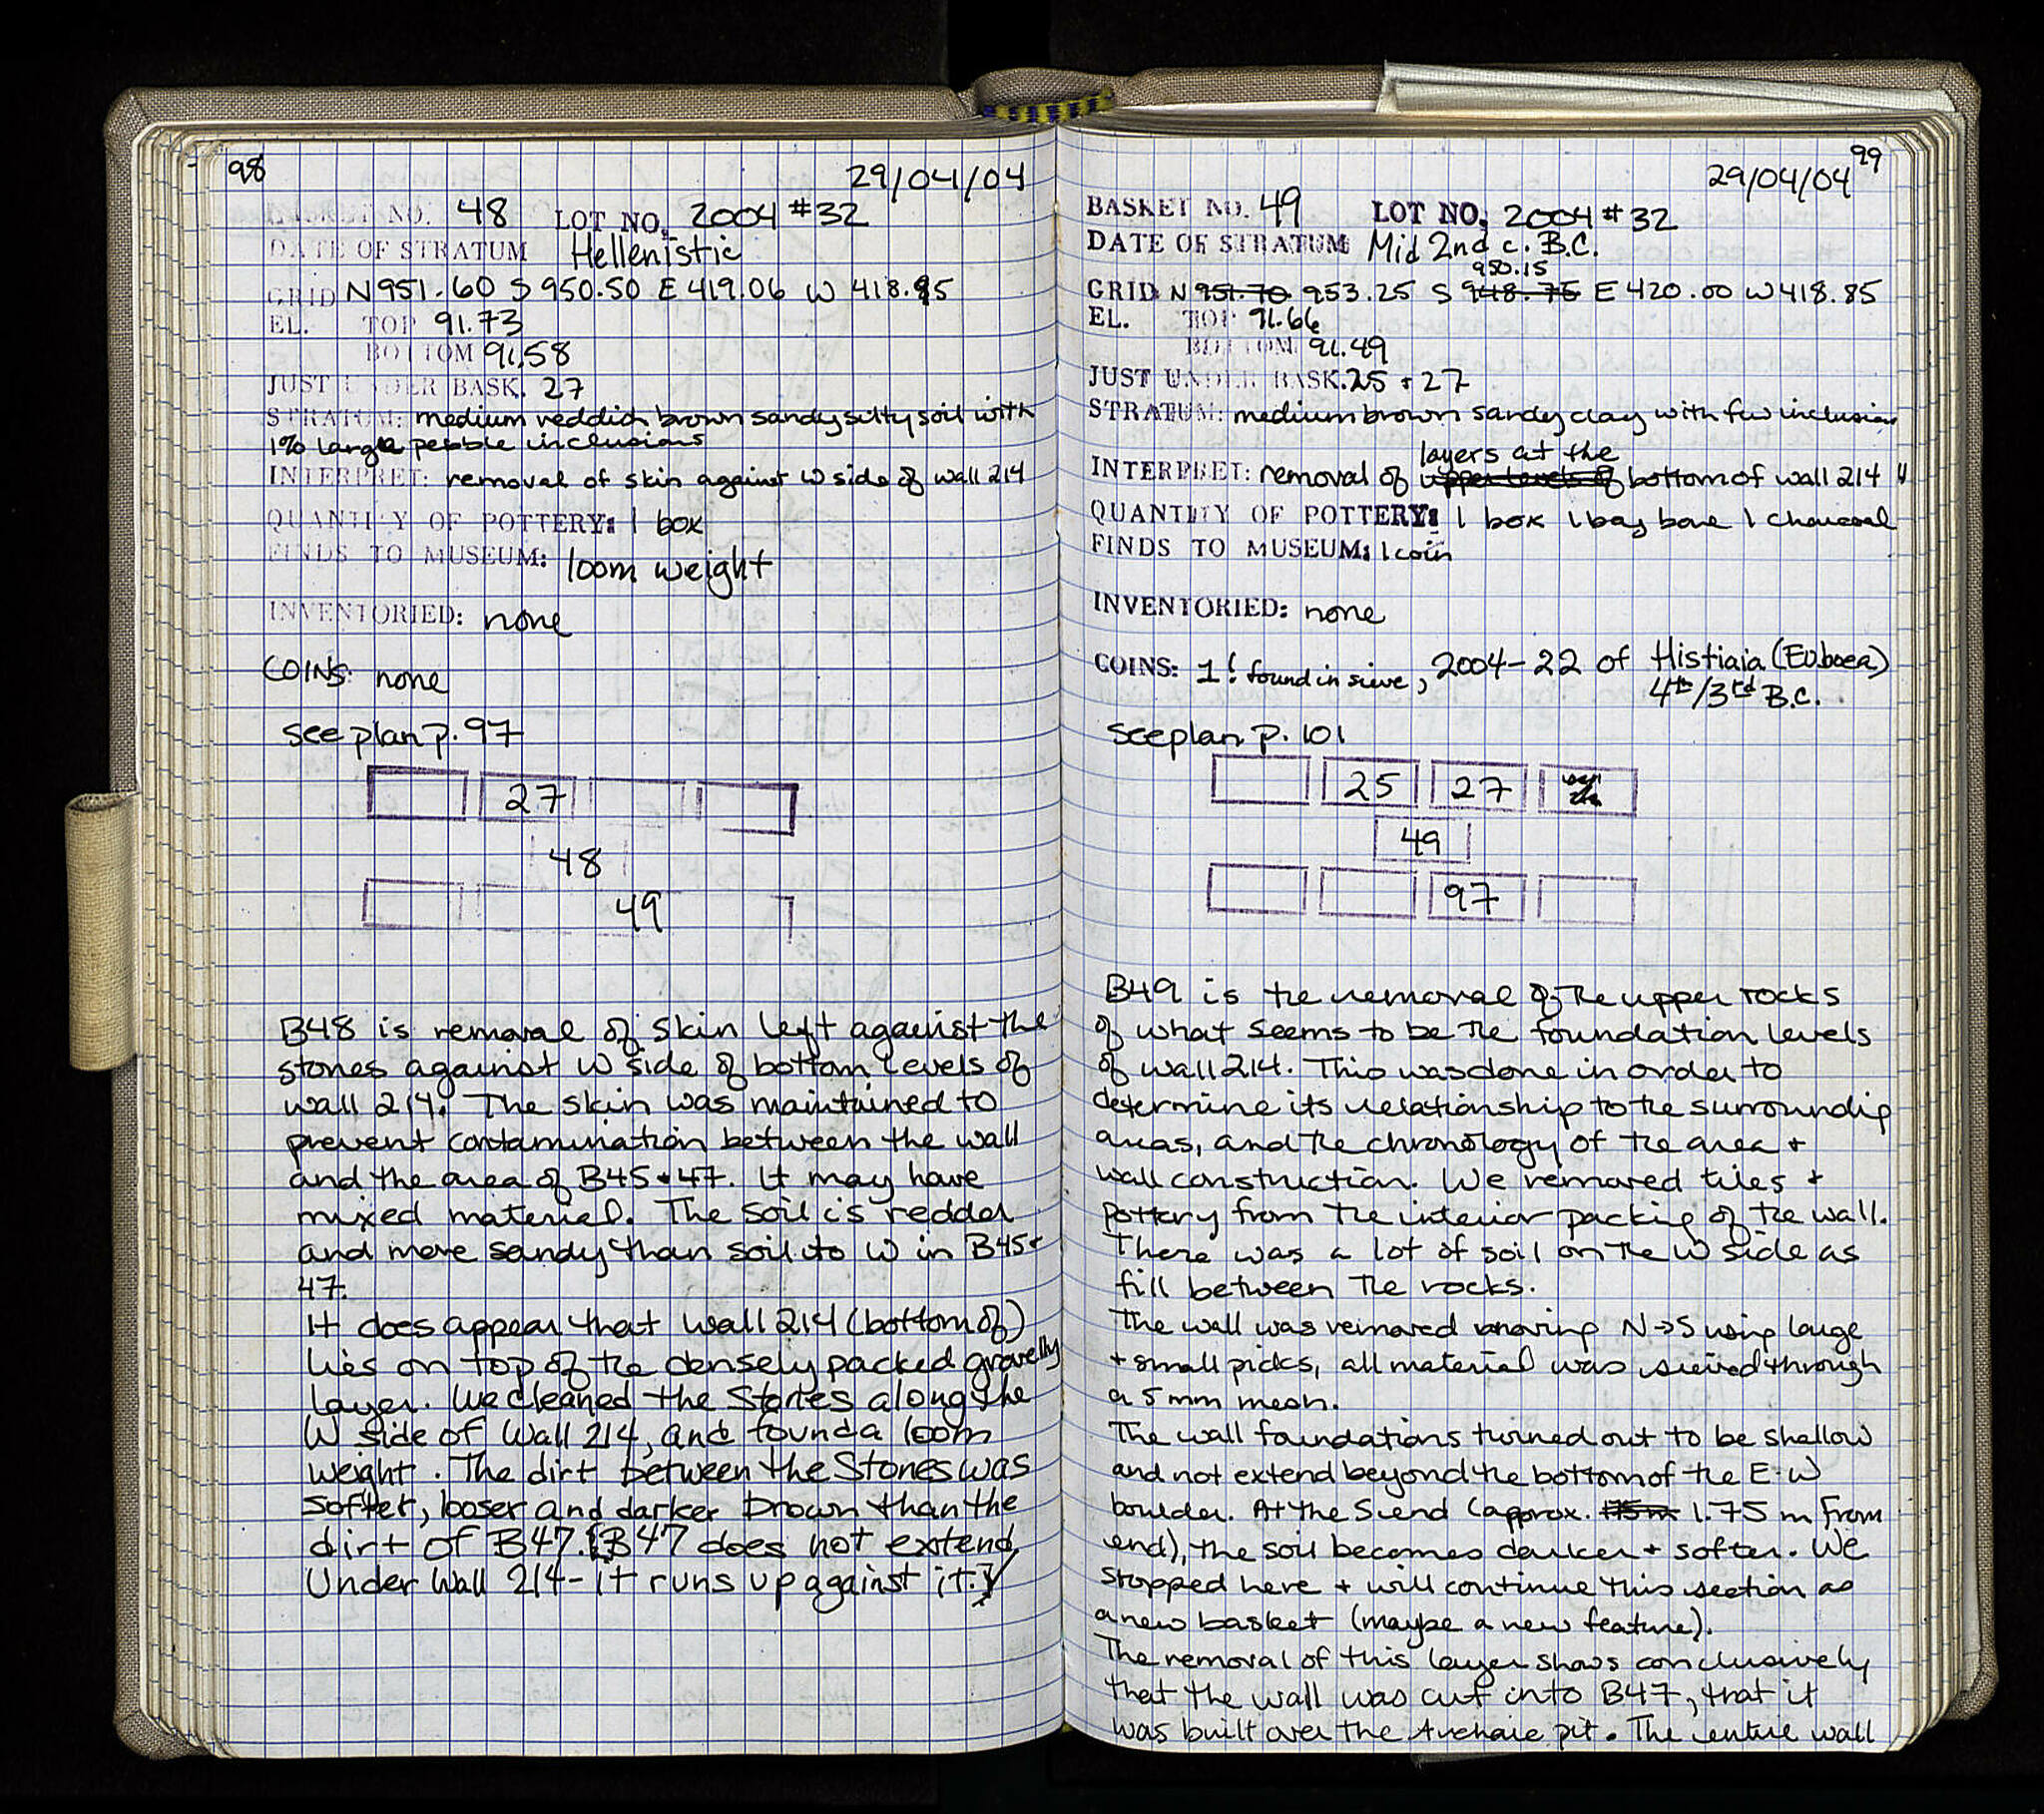 98
29/04/04
BASKET NO. 48 LOT NO. 2004 #32
DATE OF STRATUM Hellenistic
GRID N951.60 S 950.50 E 419.06 W 418.95
EL. TOP 91.73
BOTTOM 91.58
JUST UNDER BASK. 27
STRATUM: medium reddish brown sandy silty soil with
1% large pebble inclusions
INTERPRET: removal of skin against W side of wall 214
QUANTITY OF POTTERY: 1 box
FINDS TO MUSEUM: loom weight
INVENTORIED: none
COINS: none
see plan p. 97
27
48
49
B48 is removal of skin left against the
stones against W side of bottom levels of
wall 214. The skin was maintained to
prevent contamination between the wall
and the area of B45 + 47. It may have
mixed material. The soil is redder
and more sandy than soil to W in B45+
47.
It does appear that wall 214 (bottom of)
lies on top of the densely packed gravelly
layer. We cleaned the stones along the
W side of Wall 214, and found a loom
weight. The dirt between the stones was
softer, looser and darker brown than the
dirt of B47. [B47 does not extend
under Wall 214 - it runs up against it.]
99
29/04/04
BASKET NO. 49 LOT NO. 2004 #32
DATE OF STRATUM Mid 2nd c. B.C.
950.15
GRID N 951.70 953.25 S 948.75 E 420.00 W 418.85
EL. TOP 91.66
BOTTOM 91.49
JUST UNDER BASK. 25 + 27
STRATUM: medium brown sandy clay with few inclusions
layers at the
INTERPRET: removal of upper levels of bottom of wall 214
QUANTITY OF POTTERY: 1 box 1 bag bone 1 charcoal
FINDS TO MUSEUM: 1 coin
INVENTORIED: none
COINS: 1! found in sieve, 2004-22 of Histiaia (Euboea)
4th/3rd B.C.
see plan p. 101
25 27
49
97
B49 is the removal of the upper rocks
of what seems to be the foundation levels
of wall 214. This was done in order to
determine its relationship to the surroundig
areas, and the chronology of the area +
wall construction. We removed tiles +
pottery from the interior packing of the wall.
There was a lot of soil on the W side as
fill between the rocks.
The wall was removed moving N→S using large
+ small picks, all material was sieved through
a 5 mm mesh.
The wall foundations turned out to be shallow
and not extend beyond the bottom of the E-W
boulder. At the S end (approx. 1.75 m from
end), the soil becomes darker + softer. We
stopped here + will continue this section as
a new basket (maybe a new feature).
The removal of this layer shows conclusively
that the wall was cut into B47, that it
was built over the Archaic pit. The entire wall